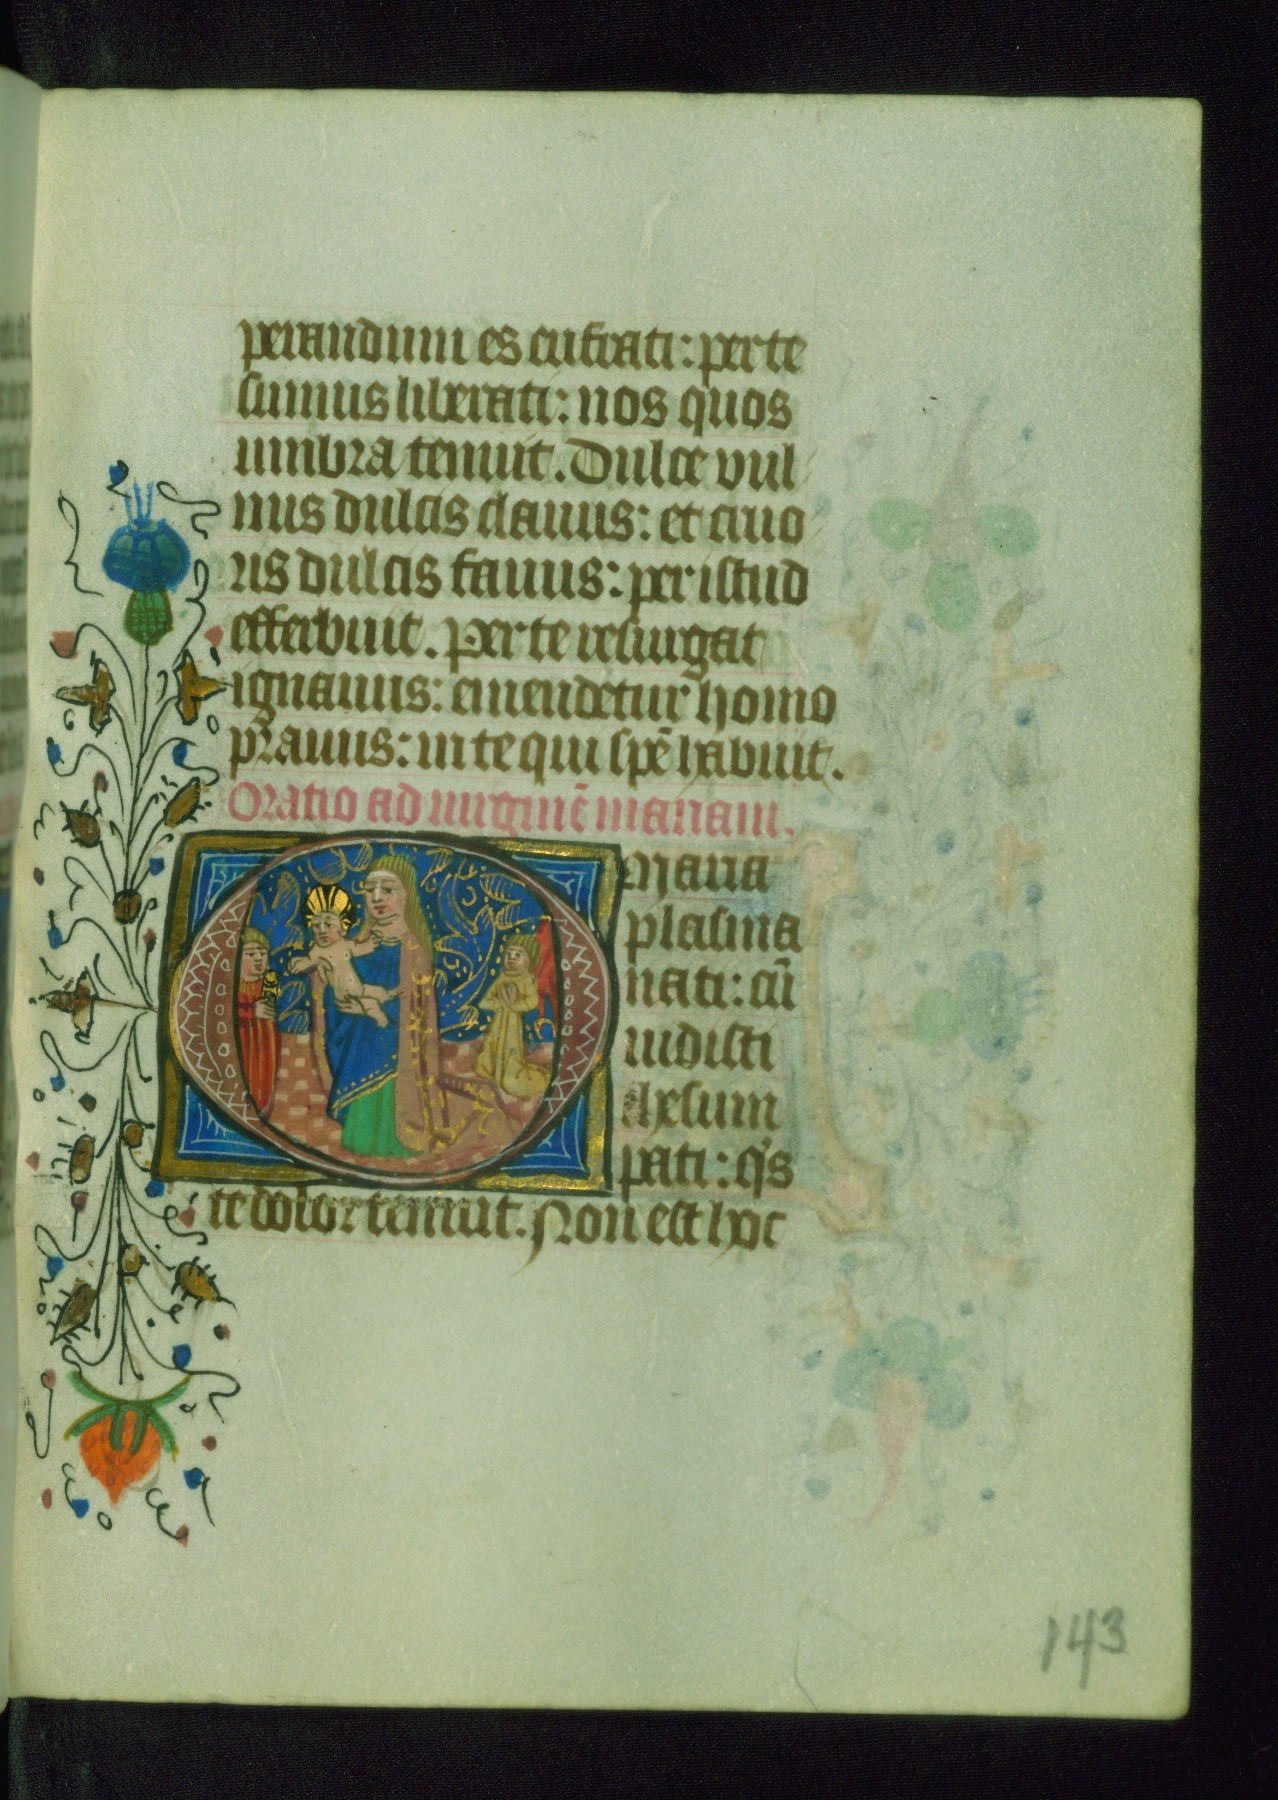 perandum es cufrati: per te
sumus liberati: nos quos
umbra tenuit. Dulce vul
nus dulcis clauus: et cruo
ris dulcis fauus: per istud
efferbuit. Per te resurgat
ignauus: emendetur homo
prauus: in te qui spē habuit.
Oratio ad uirginē mariam.
O Maria
plasma
nati: cū
uidisti
ihesum
pati: q's
te dolor tenuit. Non est hoc
143